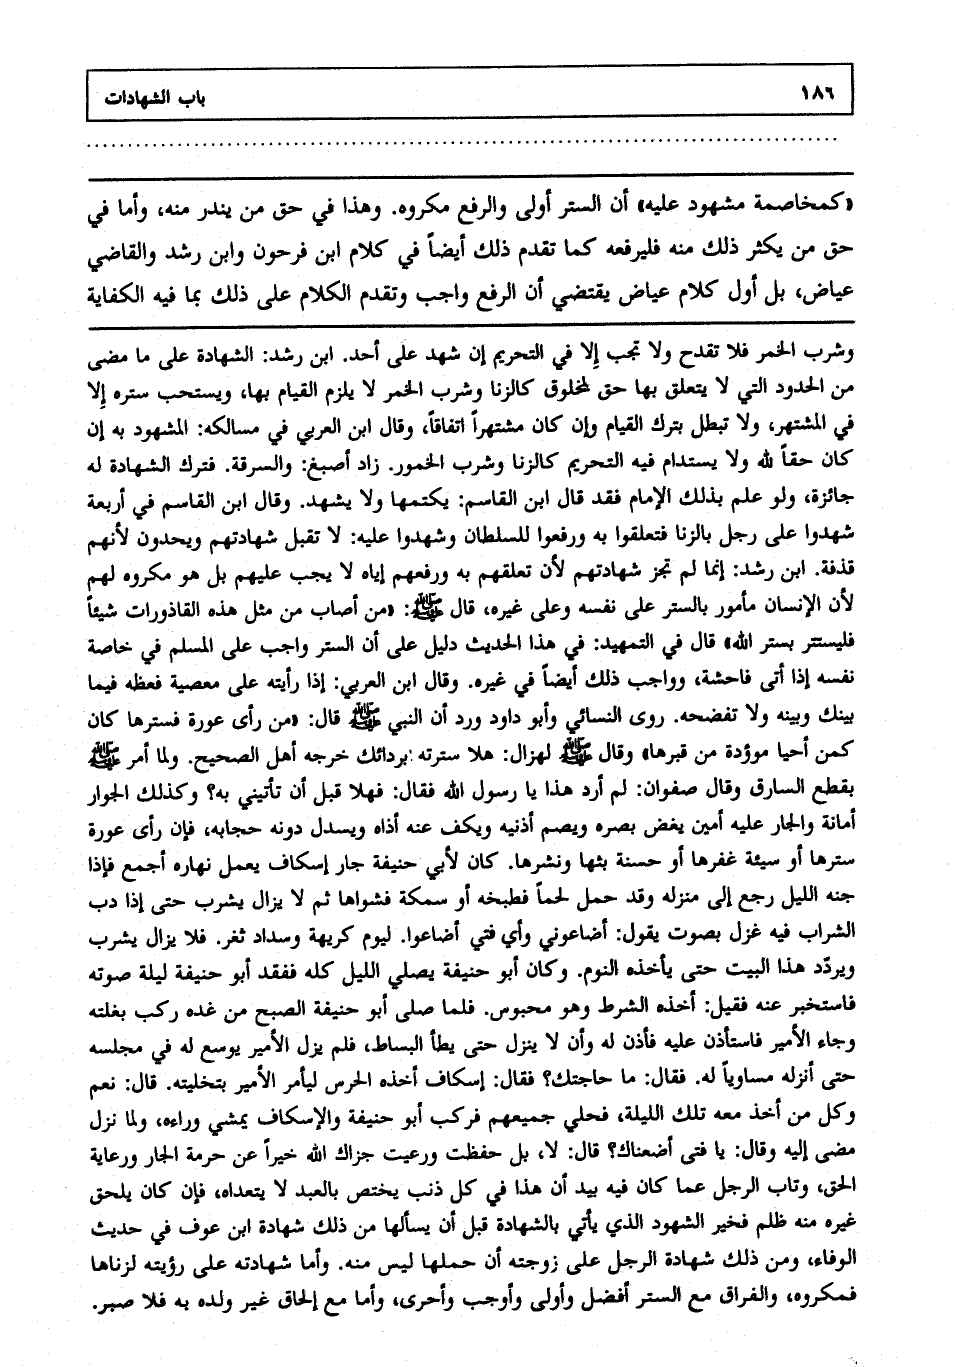 ١٨٦ باب الشهادات
«كمخاصمة مشهود عليه» أن الستر أولى والرفع مكروه. وهذا في حق من يندر منه، وأما في
حق من يكثر ذلك منه فليرفعه كما تقدم ذلك أيضاً في كلام ابن فرحون وابن رشد والقاضي
عياض، بل أول كلام عياض يقتضي أن الرفع واجب وتقدم الكلام على ذلك بما فيه الكفاية
وشرب الخمر فلا تقدح ولا تجب إلا في التحريم إن شهد على أحد. ابن رشد: الشهادة على ما مضى
من الحدود التي لا يتعلق بها حق لمخلوق كالزنا وشرب الخمر لا يلزم القيام بها، ويستحب ستره إلا
في المشتهر، ولا تبطل بترك القيام وإن كان مشتهراً اتفاقاً، وقال ابن العربي في مسالكه: المشهود به إن
كان حقاً لله ولا يستدام فيه التحريم كالزنا وشرب الخمور. زاد أصبغ: والسرقة. فترك الشهادة له
جائزة، ولو علم بذلك الإمام فقد قال ابن القاسم: يكتمها ولا يشهد. وقال ابن القاسم في أربعة
شهدوا على رجل بالزنا فتعلقوا به ورفعوا للسلطان وشهدوا عليه: لا تقبل شهادتهم ويحدون لأنهم
قذفة. ابن رشد: إنما لم تجز شهادتهم لأن تعلقهم به ورفعهم إياه لا يجب عليهم بل هو مكروه لهم
لأن الإنسان مأمور بالستر على نفسه وعلى غيره، قال ﷺ: «من أصاب من مثل هذه القاذورات شيئاً
فليستتر بستر الله» قال في التمهيد: في هذا الحديث دليل على أن الستر واجب على المسلم في خاصة
نفسه إذا أتى فاحشة، وواجب ذلك أيضاً في غيره. وقال ابن العربي: إذا رأيته على معصية فعظه فيما
بينك وبينه ولا تفضحه. روى النسائي وأبو داود ورد أن النبي ﷺ قال: «من رأى عورة فسترها كان
كمن أحيا موؤدة من قبرها» وقال ﷺ لهزال: هلا سترته بردائك خرجه أهل الصحيح. ولما أمر ﷺ
بقطع السارق وقال صفوان: لم أرد هذا يا رسول الله فقال: فهلا قبل أن تأتيني به؟ وكذلك الجوار
أمانة والجار عليه أمين يغض بصره ويصم أذنيه ويكف عنه أذاه ويسدل دونه حجابه، فإن رأى عورة
سترها أو سيئة غفرها أو حسنة بثها ونشرها. كان لأبي حنيفة جار إسكاف يعمل نهاره أجمع فإذا
جنه الليل رجع إلى منزله وقد حمل لحماً فطبخه أو سمكة فشواها ثم لا يزال يشرب حتى إذا دب
الشراب فيه غزل بصوت يقول: أضاعوني وأي فتي أضاعوا. ليوم كريهة وسداد ثغر. فلا يزال يشرب
ويردّد هذا البيت حتى يأخذه النوم. وكان أبو حنيفة يصلي الليل كله ففقد أبو حنيفة ليلة صوته
فاستخبر عنه فقيل: أخذه الشرط وهو محبوس. فلما صلى أبو حنيفة الصبح من غده ركب بغلته
وجاء الأمير فاستأذن عليه فأذن له وأن لا ينزل حتى يطأ البساط، فلم يزل الأمير يوسع له في مجلسه
حتى أنزله مساوياً له. فقال: ما حاجتك؟ فقال: إسكاف أخذه الحرس ليأمر الأمير بتخليته. قال: نعم
وكل من أخذ معه تلك الليلة، فحلي جميعهم فركب أبو حنيفة والإسكاف يمشي وراءه، ولما نزل
مضى إليه وقال: يا فتى أضعناك؟ قال: لا، بل حفظت ورعيت جزاك الله خيراً عن حرمة الجار ورعاية
الحق، وتاب الرجل عما كان فيه بيد أن هذا في كل ذنب يختص بالعبد لا يتعداه، فإن كان يلحق
غيره منه ظلم فخير الشهود الذي يأتي بالشهادة قبل أن يسألها من ذلك شهادة ابن عوف في حديث
الوفاء، ومن ذلك شهادة الرجل على زوجته أن حملها ليس منه. وأما شهادته على رؤيته لزناها
فمكروه، والفراق مع الستر أفضل وأولى وأوجب وأحرى، وأما مع إلحاق غير ولده به فلا صبر.